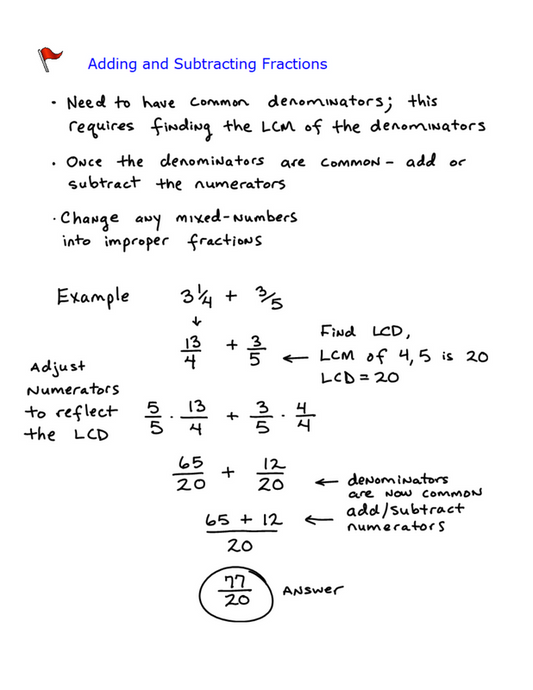 Adding and Subtracting Fractions
· Need to have common denominators; this
requires finding the LCM of the denominators
· Once the denominators are common - add or
subtract the numerators
· Change any mixed-numbers
into improper fractions
Example 3 1/4 + 3/5
↓
13/4 + 3/5 ← Find LCD,
LCM of 4,5 is 20
LCD = 20
Adjust
Numerators
to reflect
the LCD
5/5 · 13/4 + 3/5 · 4/4
65/20 + 12/20 ← denominators
are now common
65 + 12 / 20 ← add/subtract
numerators
77/20 Answer